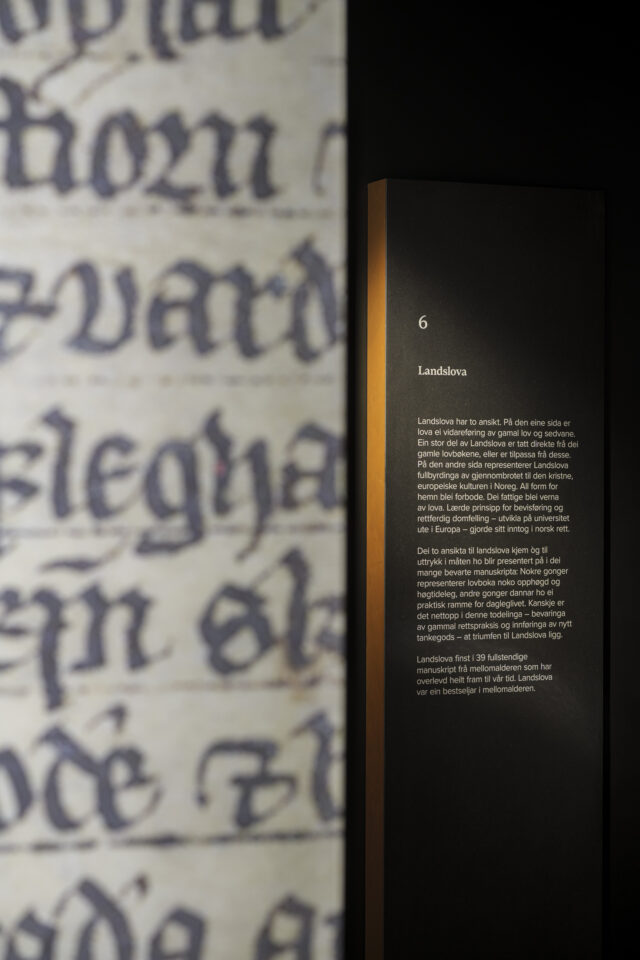 tiorn
⁊ vard
slegha
ein
ode ⁊
6
Landslova
Landslova har to ansikt. På den eine sida er
lova ei vidareføring av gamal lov og sedvane.
Ein stor del av Landslova er tatt direkte frå dei
gamle lovbøkene, eller er tilpassa frå desse.
På den andre sida representerer Landslova
fullbyrdinga av gjennombrotet til den kristne,
europeiske kulturen i Noreg. All form for
hemn blei forbode. Dei fattige blei verna
av lova. Lærde prinsipp for bevisføring og
rettferdig domfelling – utvikla på universitet
ute i Europa – gjorde sitt inntog i norsk rett.
Dei to ansikta til landslova kjem òg til
uttrykk i måten ho blir presentert på i dei
mange bevarte manuskripta: Nokre gonger
representerer lovboka noko opphøgd og
høgtideleg, andre gonger dannar ho ei
praktisk ramme for dagleglivet. Kanskje er
det nettopp i denne todelinga – bevaringa
av gammal rettspraksis og innføringa av nytt
tankegods – at triumfen til Landslova ligg.
Landslova finst i 39 fullstendige
manuskript frå mellomalderen som har
overlevd heilt fram til vår tid. Landslova
var ein bestseljar i mellomalderen.